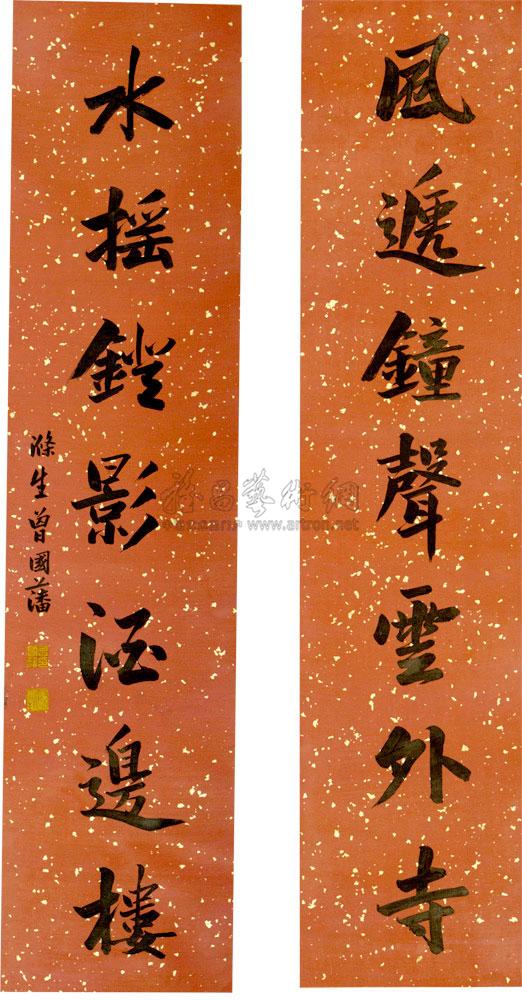 風遞鐘聲雲外寺
水摇鐙影酒邊樓
滌生曾國藩
雅昌藝術網
www.artron.net